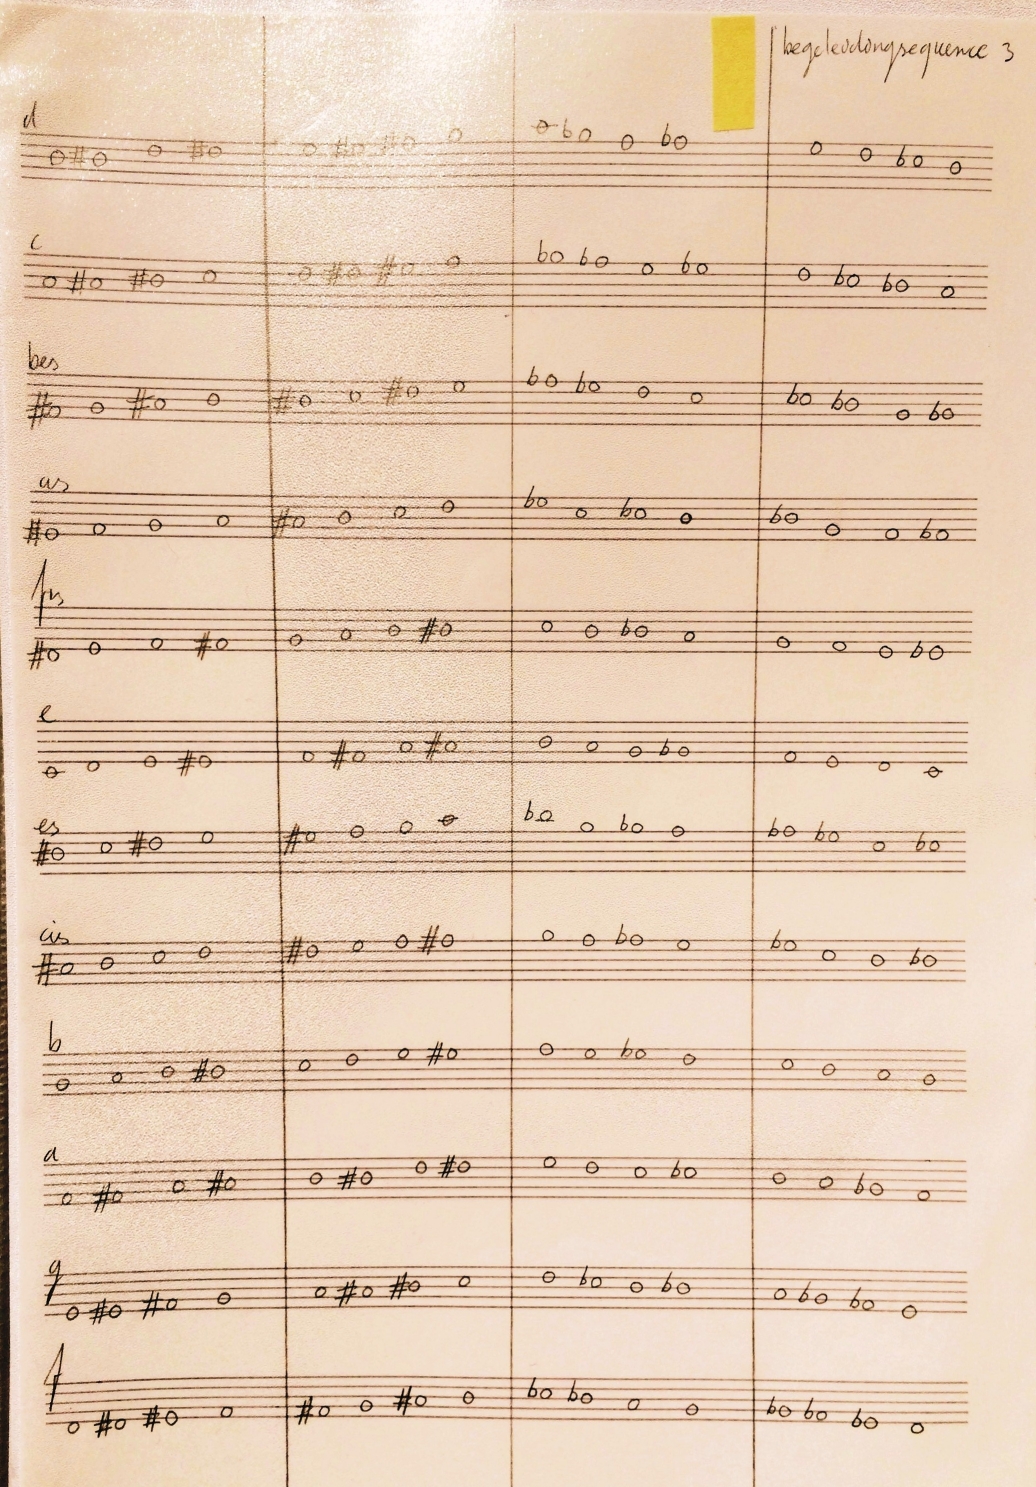 begeleidingsequence 3
d
c
bes
as
fis
e
es
cis
b
a
g
f